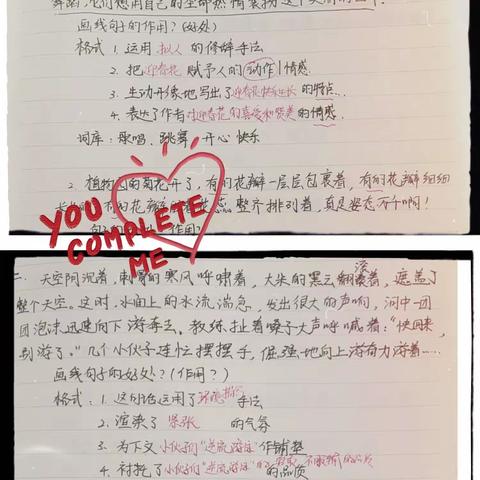 画线句子的作用？（好处）
格式 1. 运用拟人的修辞手法
2. 把迎春花赋予人的动作|情感
3. 生动形象地写出了迎春花快乐生长的特点
4. 表达了作者对迎春花的喜爱和赞美的情感.
词库：歌唱、跳舞、开心 快乐
2. 植物园的菊花开了，有的花瓣一层层包裹着，有的花瓣细细
整齐排列着，真是姿态万千啊！
YOU
COMPLETE
ME
二、天空阴沉着，刺骨的寒风呼啸着，大朵的黑云翻滚着，遮盖了
整个天空。这时，水面上的水流湍急，发出很大的声响，河中一团
团泡沫迅速向下游奔去。教练扯着嗓子大声呼喊着：“快回来，
别游了。”几个小伙子连忙摆摆手，倔强地向上游奋力游着……
画线句子的好处？（作用？）
格式：1. 这句话运用了环境描写手法
2. 渲染了紧张的气氛
3. 为下文小伙子们“逆流游泳”作铺垫
4. 衬托了小伙子们“逆流游泳”的品质